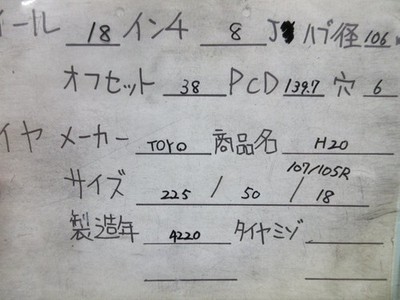 ール 18 インチ 8 J ハブ径 106
オフセット 38 PCD 139.7 穴 6
イヤ メーカー TOYO 商品名 H20
107/105R
サイズ 225 / 50 / 18
製造年 4220 タイヤミゾ